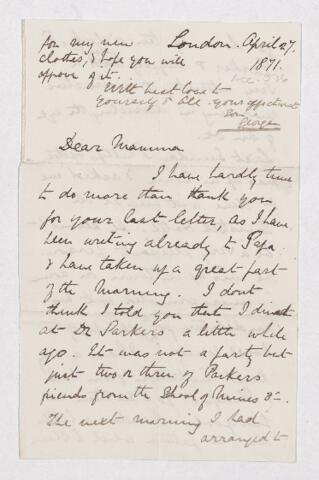 for my new
clothes, & hope you will
approve of it.
With best love to
yourself & all. your affectionate
Son
George
London. April 27.
1871.
Dear Mamma
I have hardly time
to do more than thank you
for your last letter, as I have
been writing already to Papa
& have taken up a great part
of the morning. I dont
think I told you that I dined
at Dr Parkers a little while
ago. It was not a party but
just two or three of Parkers
friends from the School of Mines &c.
The next morning I had
arranged to